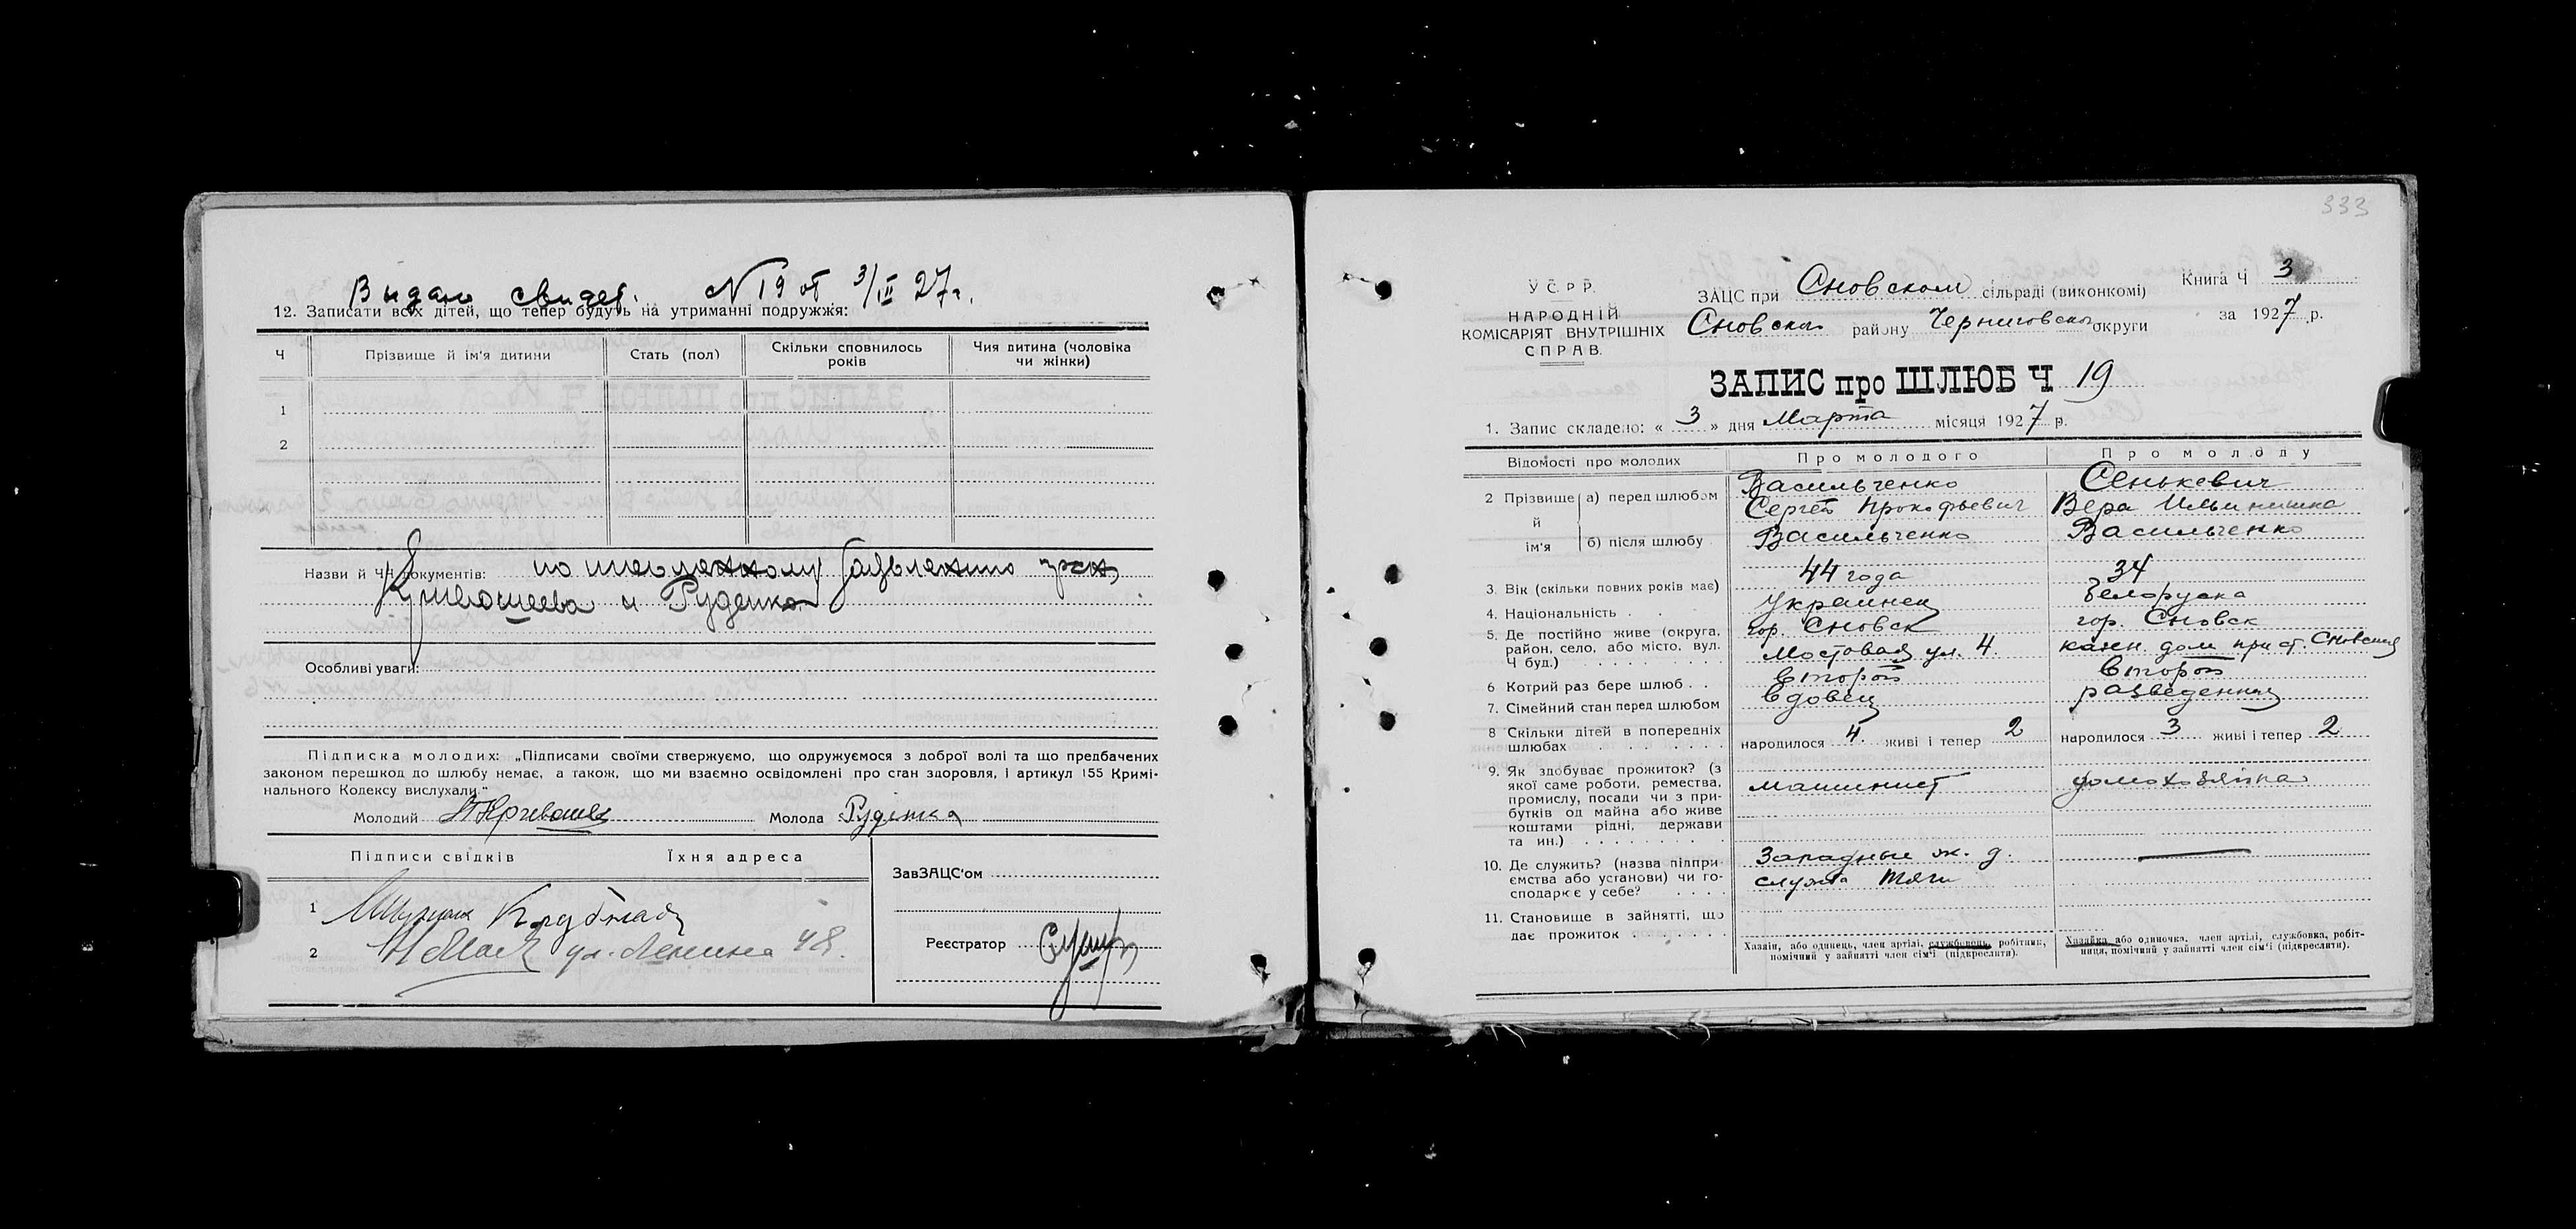 Видано свидет. N 19 от 3/III 27 г.
12. Записати всіх дітей, що тепер будуть на утриманні подружжя:
Ч Прізвище й ім'я дитини Стать (пол) Скільки сповнилось років Чия дитина (чоловіка чи жінки)
1
2
Назви й ЧЧ документів: по
Кривошеева и Руденко
Особливі уваги:
Підписка молодих: „Підписами своїми ствержуємо, що одружуємося з доброї волі та що предбачених
законом перешкод до шлюбу немає, а також, що ми взаємно освідомлені про стан здоровля, і артикул 155 Кримі-
нального Кодексу вислухали."
Молодий Молода Руденка
Підписи свідків Їхня адреса
1
2 ул. Ленина 48.
ЗавЗАЦС'ом
Реєстратор
333
У С Р Р.
НАРОДНІЙ
КОМІСАРІЯТ ВНУТРІШНІХ
СПРАВ.
ЗАЦС при Сновском сільраді (виконкомі)
Книга Ч 3
Сновска району Черниговска округи
за 1927 р.
ЗАПИС про ШЛЮБ Ч 19
1. Запис складено: « 3 » дня Марта місяця 1927 р.
Відомості про молодих Про молодого Про молоду
2 Прізвище й ім'я
а) перед шлюбом Васильченко Сенькевич
Сергей Прокофьевич Вера Ильинишна
б) після шлюбу Васильченко Васильченко
3. Вік (скільки повних років має) 44 года 34
4. Національність Украинец белоруска
5. Де постійно живе (округа, гор. Сновск гор. Сновск
район, село, або місто, вул. Мостовая ул. 4. казен. дом при ст. Сновская
Ч буд.)
6 Котрий раз бере шлюб второй второй
7. Сімейний стан перед шлюбом вдовец разведенная
8 Скільки дітей в попередніх
шлюбах народилося 4 живі і тепер 2 народилося 3 живі і тепер 2
9. Як здобуває прожиток? (з машинист домохозяйка
якої саме роботи, ремества,
промислу, посади чи з при-
бутків од майна або живе
коштами рідні, держави
та ин.)
10. Де служить? (назва підпри- Западные ж. д.
ємства або установи) чи го- служба тяги
сподарює у себе?
11. Становище в зайнятті, що
дає прожиток
Хазяїн, або одинець, член артілі, службовець, робітник,
помічний у зайнятті член сім'ї (підкреслити).
Хазяйка або одиночка, член артілі, службовка, робіт-
ниця, помічний у зайнятті член сім'ї (підкреслити).